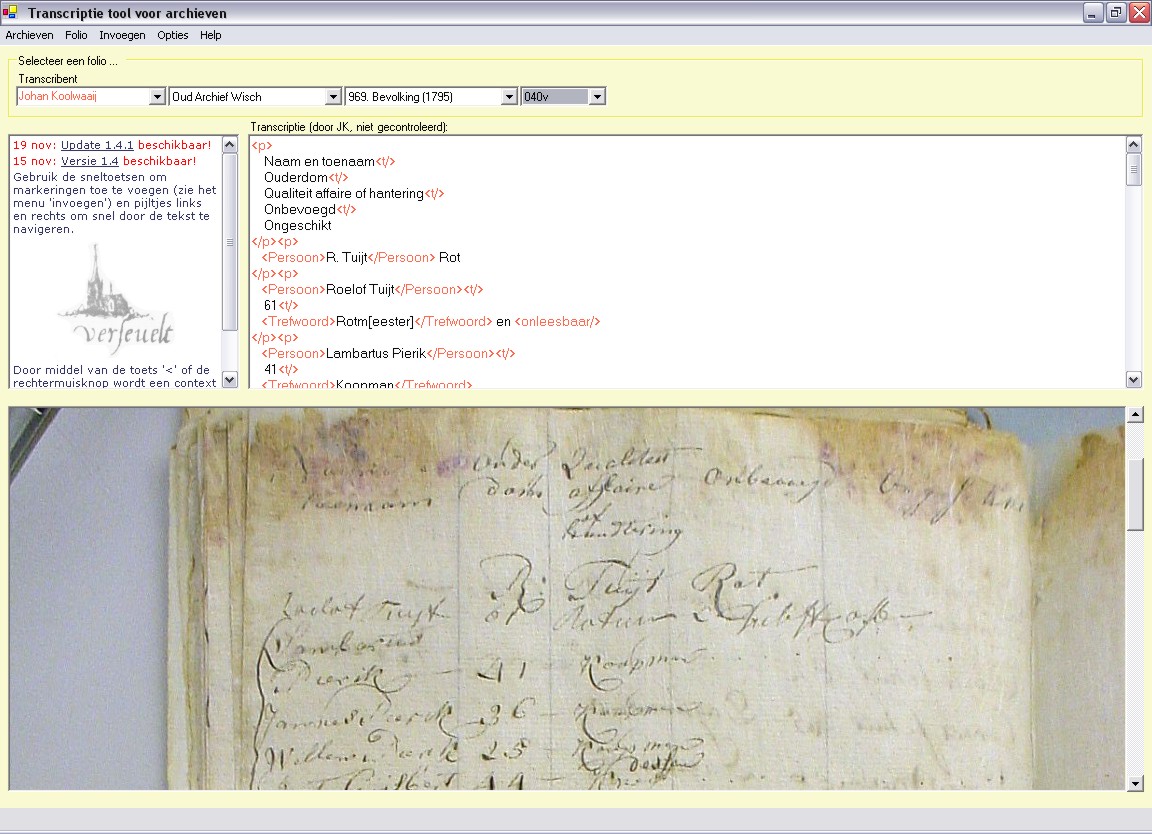 Transcriptie tool voor archieven
Archieven Folio Invoegen Opties Help
Selecteer een folio ...
Transcribent
Johan Koolwaaij Oud Archief Wisch 969. Bevolking (1795) 040v
Transcriptie (door JK, niet gecontroleerd):
19 nov: Update 1.4.1 beschikbaar!
15 nov: Versie 1.4 beschikbaar!
Gebruik de sneltoetsen om
markeringen toe te voegen (zie het
menu 'invoegen') en pijltjes links
en rechts om snel door de tekst te
navigeren.
verseuelt
Door middel van de toets '<' of de
rechtermuisknop wordt een context
<p>
Naam en toenaam<t/>
Ouderdom<t/>
Qualiteit affaire of hantering<t/>
Onbevoegd<t/>
Ongeschikt
</p><p>
<Persoon>R. Tuijt</Persoon> Rot
</p><p>
<Persoon>Roelof Tuijt</Persoon><t/>
61<t/>
<Trefwoord>Rotm[eester]</Trefwoord> en <onleesbaar/>
</p><p>
<Persoon>Lambartus Pierik</Persoon><t/>
41<t/>
<Trefwoord>Koopman</Trefwoord>
Ouder Qualiteit
doms affaire Onbevoegd
toenaam
of
handtering
R. Tuijt Rot
Roelof Tuijt 61
Lambartus
Pierik 41 Koopman
Jannes Pierik 36 Koopman
Willem Pierik 25 Koopman
44